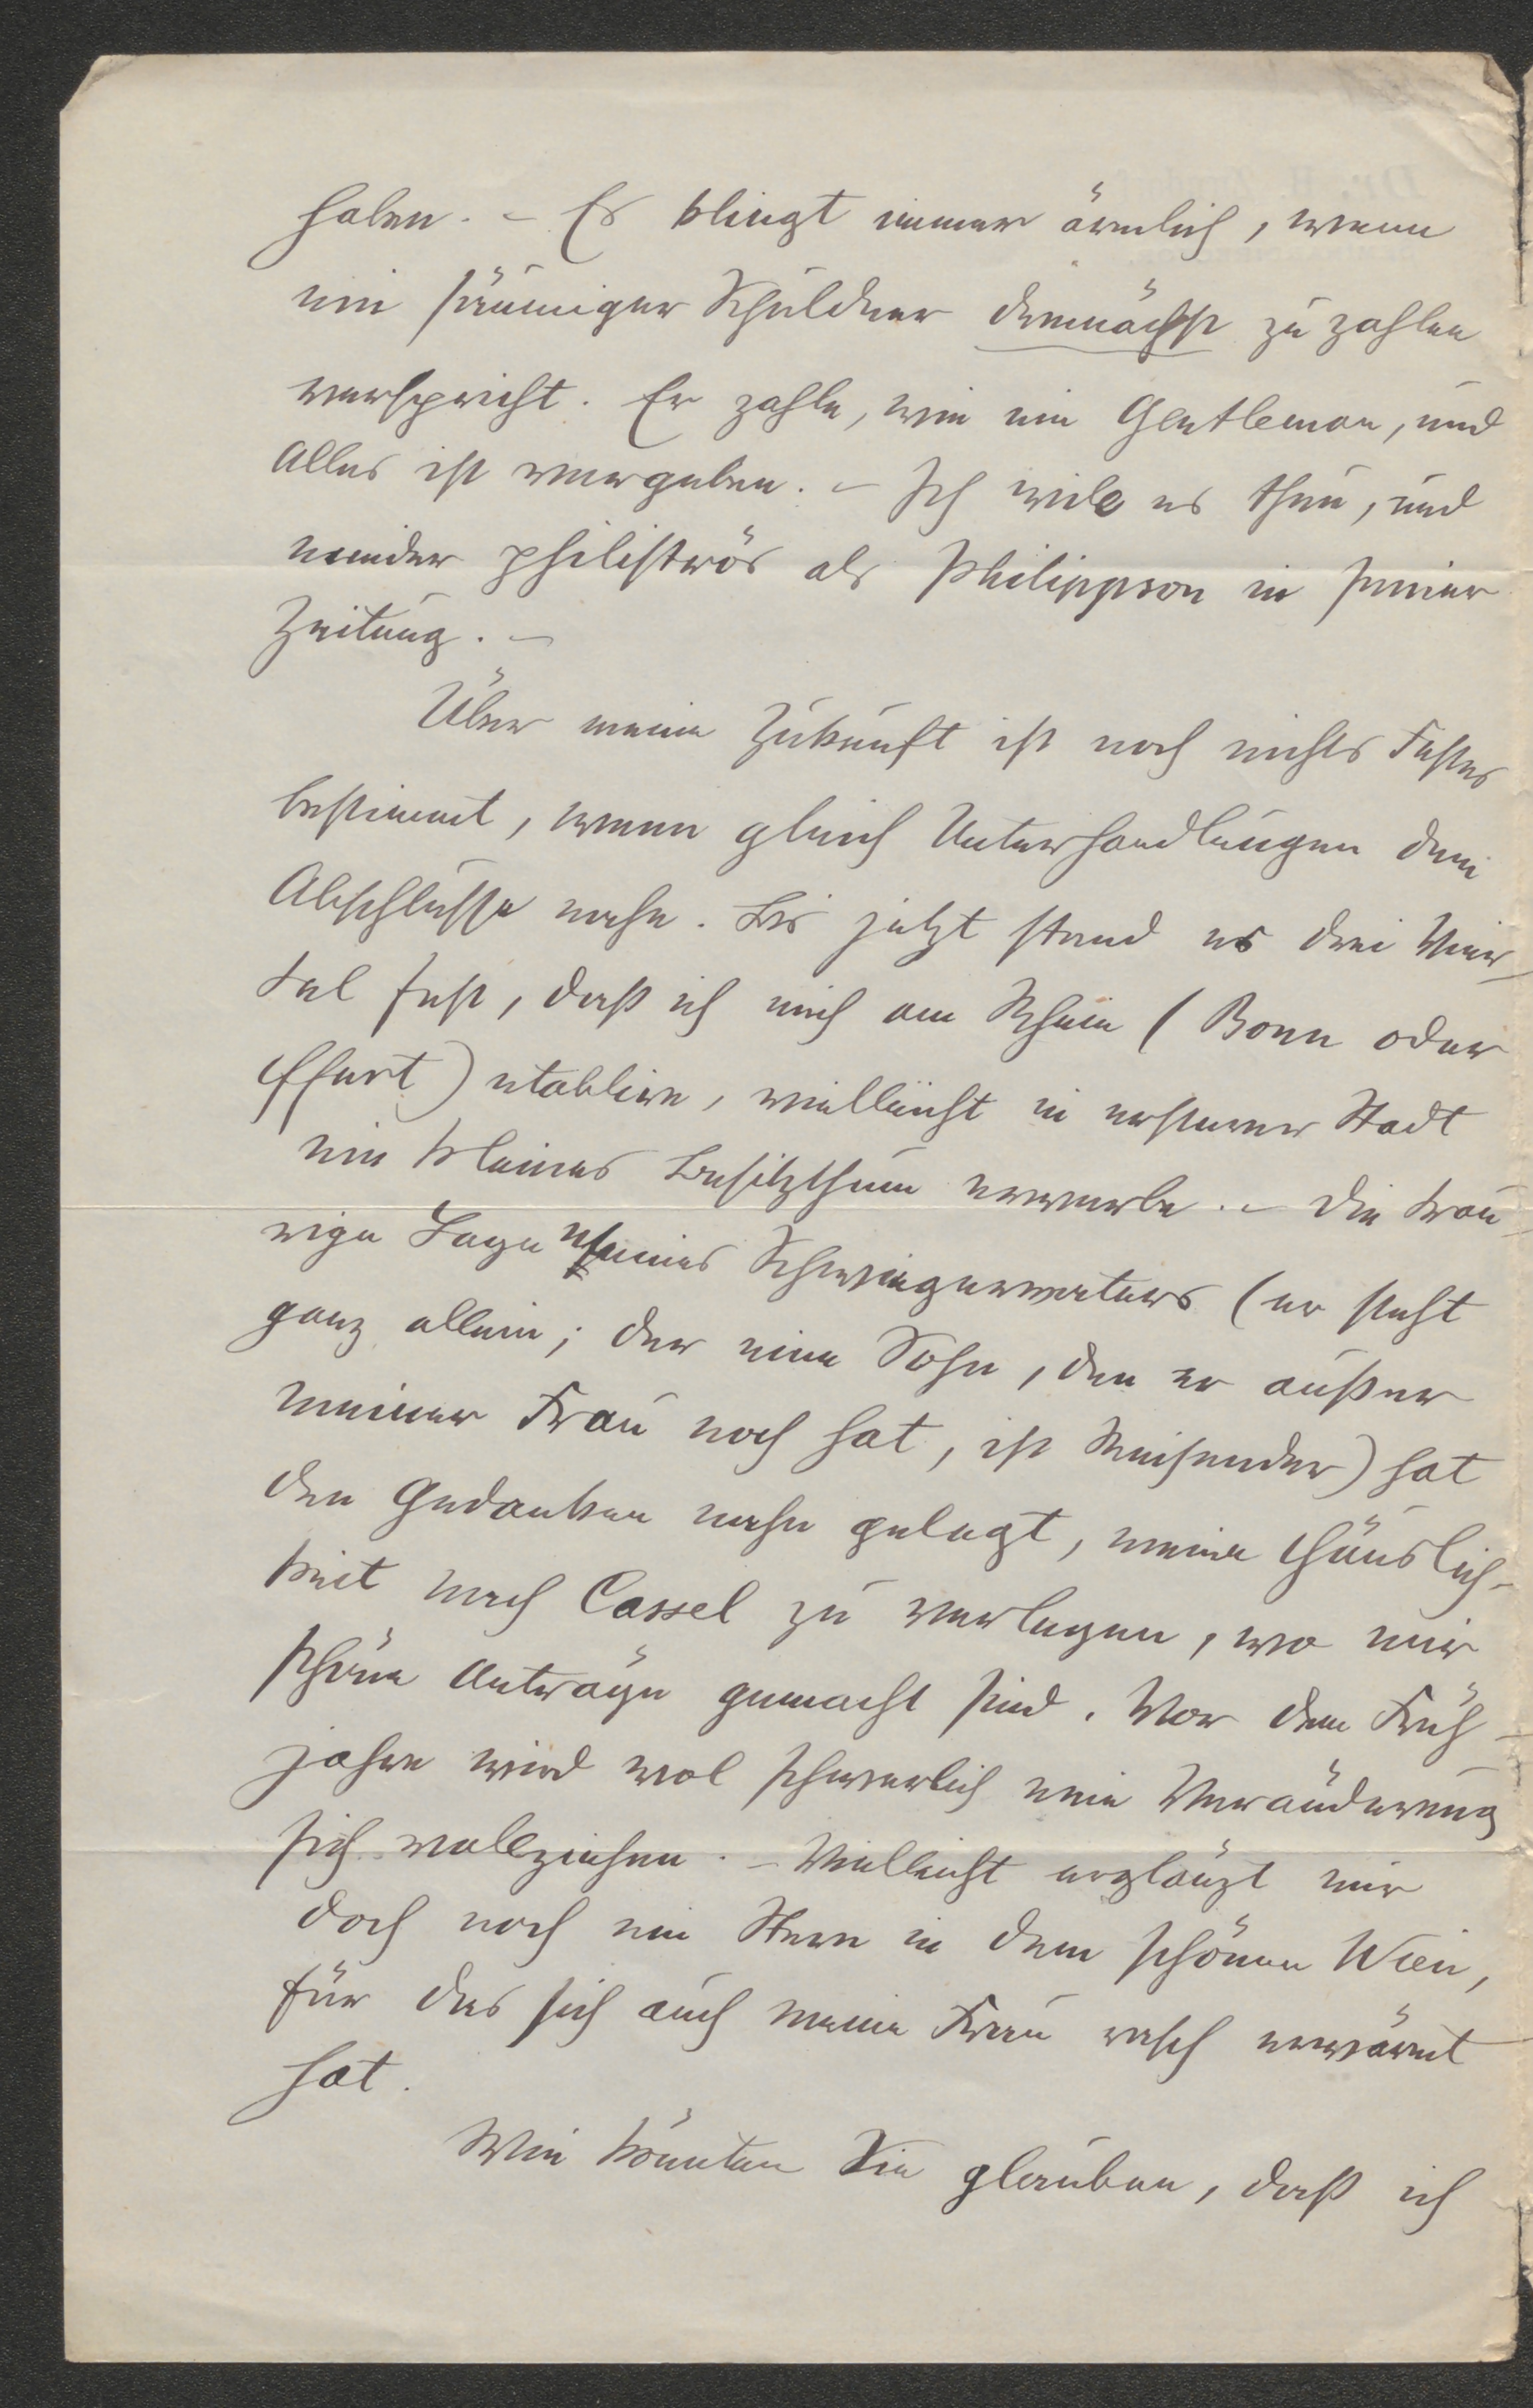 haben. – Es klingt immer ärmlich, wenn
ein säumiger Schuldner demnächst zu zahlen
verspricht. Er zahle, wie ein Gentleman, und
Alles ist vergeben. – Ich will es thun, und
minder philiströs als Philippson in seiner
Zeitung. –
Über meine Zukunft ist noch nichts Festes
bestimmt, wenn gleich Unterhandlungen dem
Abschlusse nahe. Bis jetzt stand es drei Vier-
tel fest, daß ich mich am Rhein (Bonn oder
Ffurt) etablire, vielleicht in ersterer Stadt
ein kleines Besitzthum erwerbe. – Die trau-
rige Lage meines Schwiegervaters (er steht
ganz allein; der eine Sohn, den er außer
meiner Frau noch hat, ist Reisender) hat
den Gedanken nahe gelegt, meine Häuslich-
keit nach Cassel zu verlegen, wo mir
schöne Anträge gemacht sind. Vor dem Früh-
jahre wird wol schwerlich eine Veränderung
sich vollziehen. – Vielleicht erglänzt mir
doch noch ein Stern in dem schönen Wien,
für das sich auch meine Frau rasch erwärmt
hat.
Wie könnten Sie glauben, daß ich